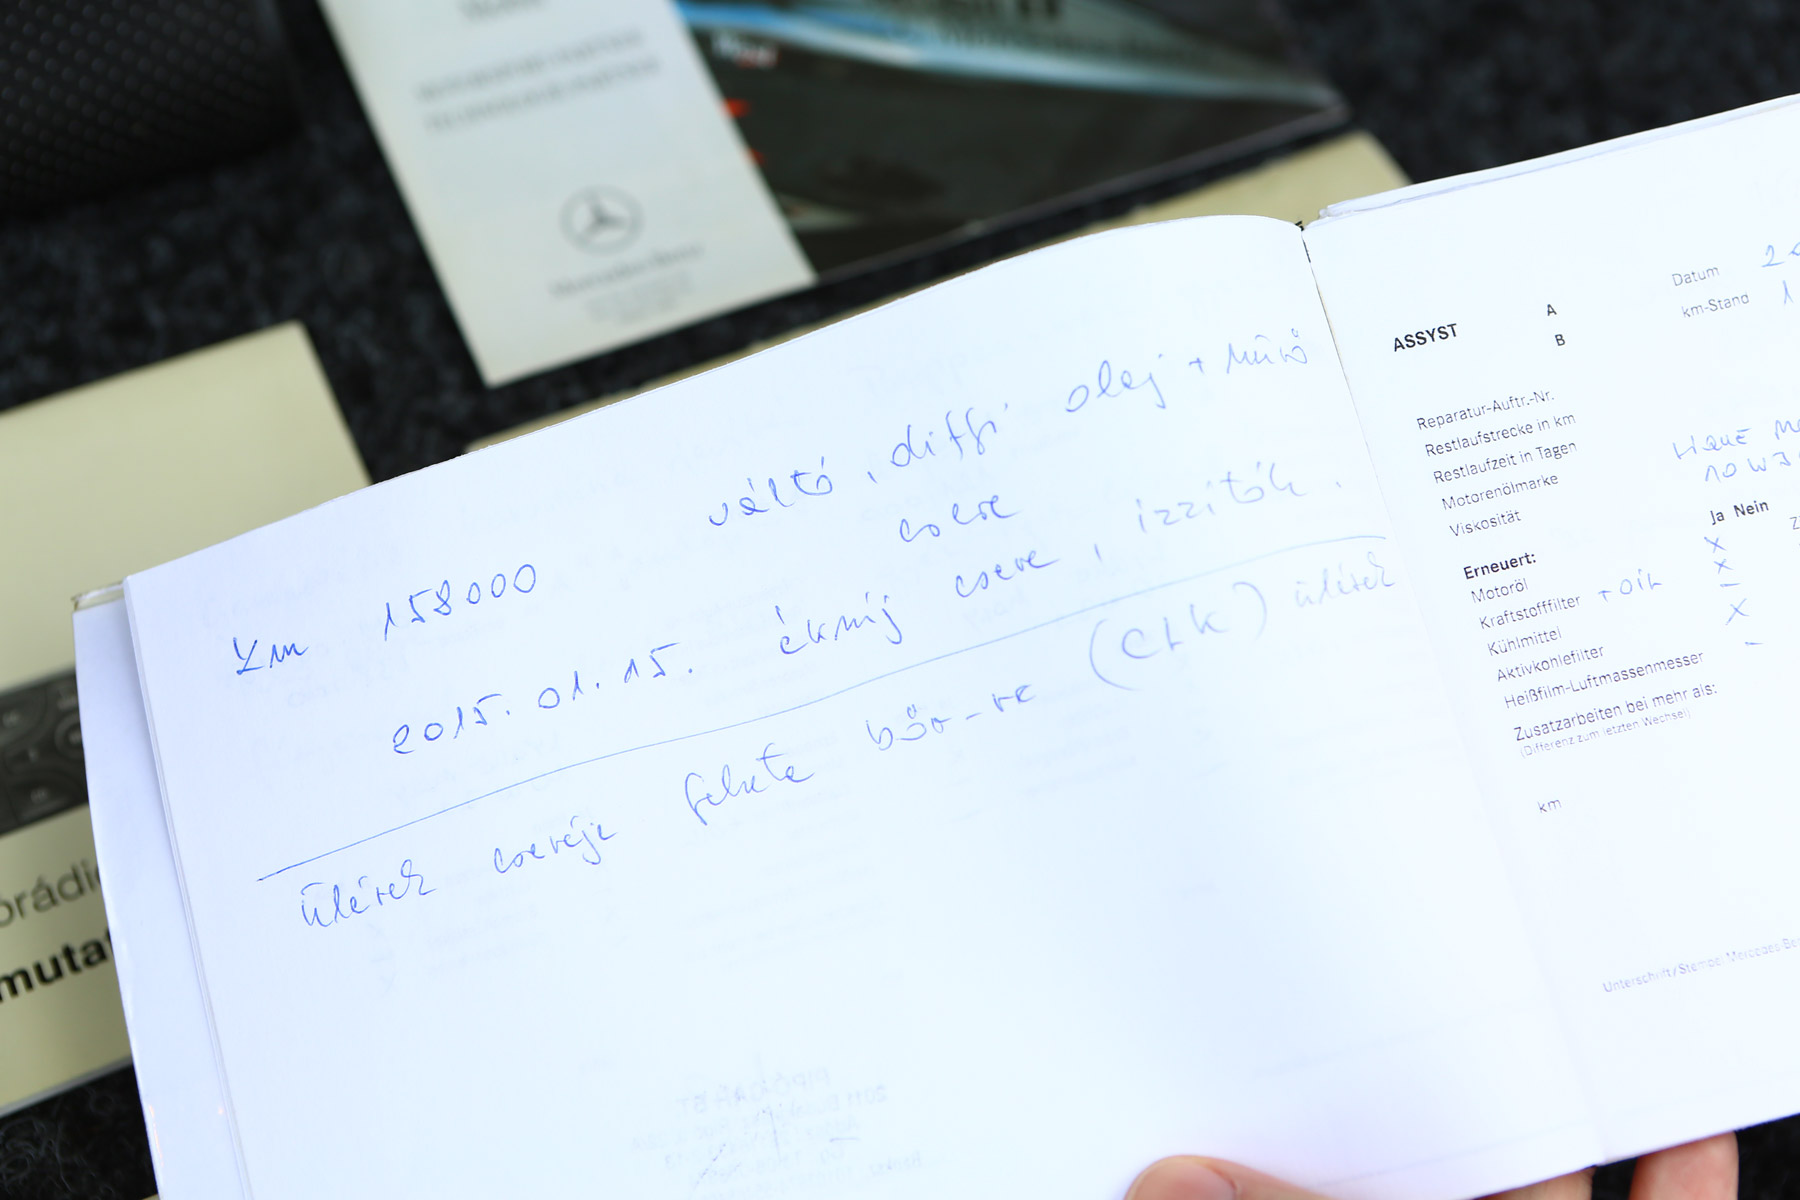 váltó, diffi olej + szűrő
Km 158000 csere
2015.01.15. ékszíj csere, izzítók.
ülések cseréje fekete bőr-re (CLK) ülések
ASSYST A
B
Datum
km-Stand
Reparatur-Auftr.-Nr.
Restlaufstrecke in km
Restlaufzeit in Tagen
Motorenölmarke
Viskosität 10W3
Ja Nein
Erneuert:
Motoröl X
Kraftstofffilter + OIL X
Kühlmittel –
Aktivkohlefilter X
Heißfilm-Luftmassenmesser –
Zusatzarbeiten bei mehr als:
(Differenz zum letzten Wechsel)
km
Unterschrift/Stempel Mercedes-Be
Mercedes-Benz
orádi
mutat